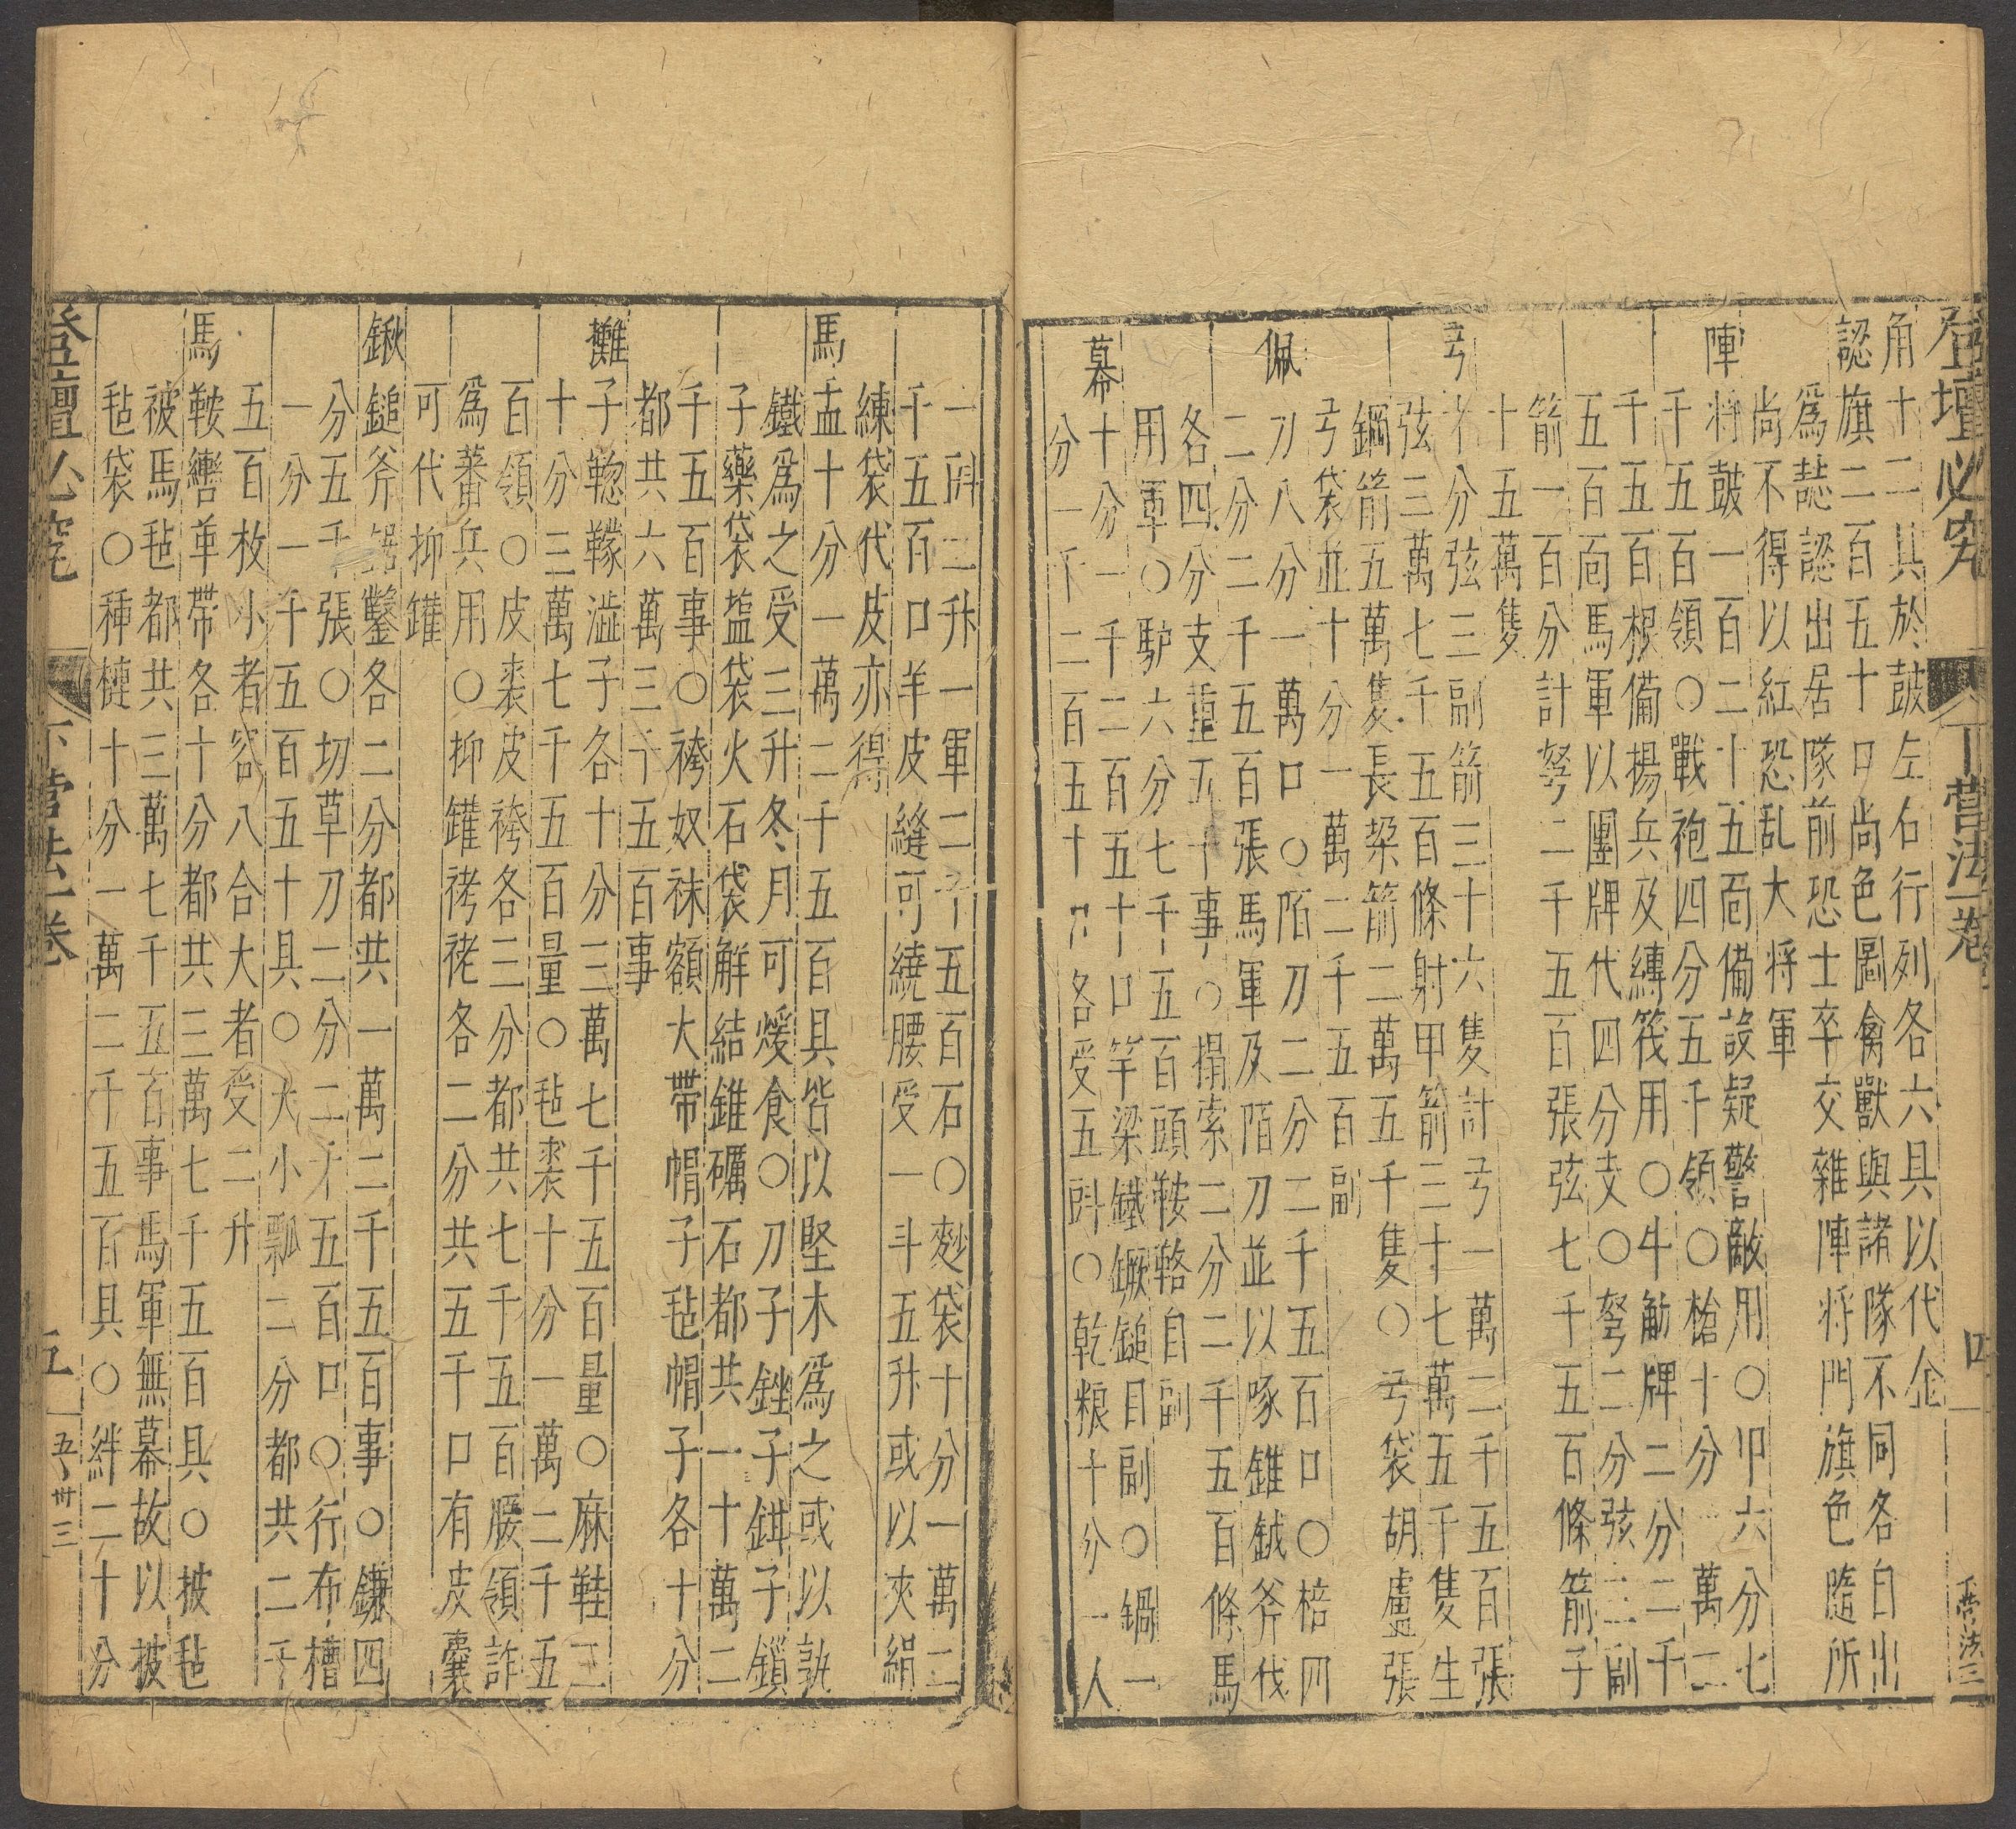 登壇必究
下營法一卷
四
下營法三
角十二具於鼓左右行列各六具以代金
認旗二百五十口尚色圖禽獸與諸隊不同各自出
爲誌認出居隊前恐士卒交雜陣将門旗色隨所
尚不得以紅恐乱大将軍
陣将鼓一百二十五面備設疑警敵用○甲六分七
千五百領○戰袍四分五千領○槍十分一萬二
千五百根備揚兵及縛筏用○牛觔牌二分二千
五百面馬軍以團牌代四分支○弩二分弦三副
箭一百分計弩二千五百張弦七千五百條箭子
十五萬隻
弓十分弦三副箭三十六隻計弓一萬二千五百張
弦三萬七千五百條射甲箭三十七萬五千隻生
鋼箭五萬隻長架箭二萬五千隻○弓袋胡盧張
弓袋並十分一萬二千五百副
佩刀八分一萬口○陌刀二分二千五百口○棓四
二分二千五百張馬軍及陌刀並以啄錐鉞斧伐
各四分支重五十事○搨索二分二千五百條馬
用軍○驴六分七千五百頭鞍輅自副
幕十分一千二百五十口竿梁鐵鐝鎚自副○鍋一
分一千二百五十口各受五㪷○乾粮十分一人
一㪷二升一軍二千五百石○麨袋十分一萬二
千五百口羊皮縫可繞腰受一斗五升或以夾絹
練袋代皮亦得
馬盂十分一萬二千五百具皆以堅木爲之或以熟
鐵爲之受三升冬月可煖食○刀子銼子鉗子鎖
子藥袋盐袋火石袋解結錐礪石都共一十萬二
千五百事○袴奴袜額大帶帽子毡帽子各十分
都共六萬三千五百事
攤子鞔鞿澁子各十分三萬七千五百量○麻鞋三
十分三萬七千五百量○毡裘十分一萬二千五
百領○皮裘皮袴各三分都共七千五百腰領詐
爲蕃兵用○抑鑵栲栳各二分共五千口有皮囊
可代抑鑵
鍬鎚斧鋸鑿各二分都共一萬二千五百事○鐮四
分五千張○切草刀二分二千五百口○行布槽
一分一千五百五十具○大小瓢二分都共二千
五百枚小者容八合大者受二升
馬鞍轡革帶各十分都共三萬七千五百具○披毡
被馬毡都共三萬七千五百事馬軍無幕故以披
毡袋○褈槤十分一萬二千五百具○絆二十分
登壇必究
下營法一卷
五
五 卅三